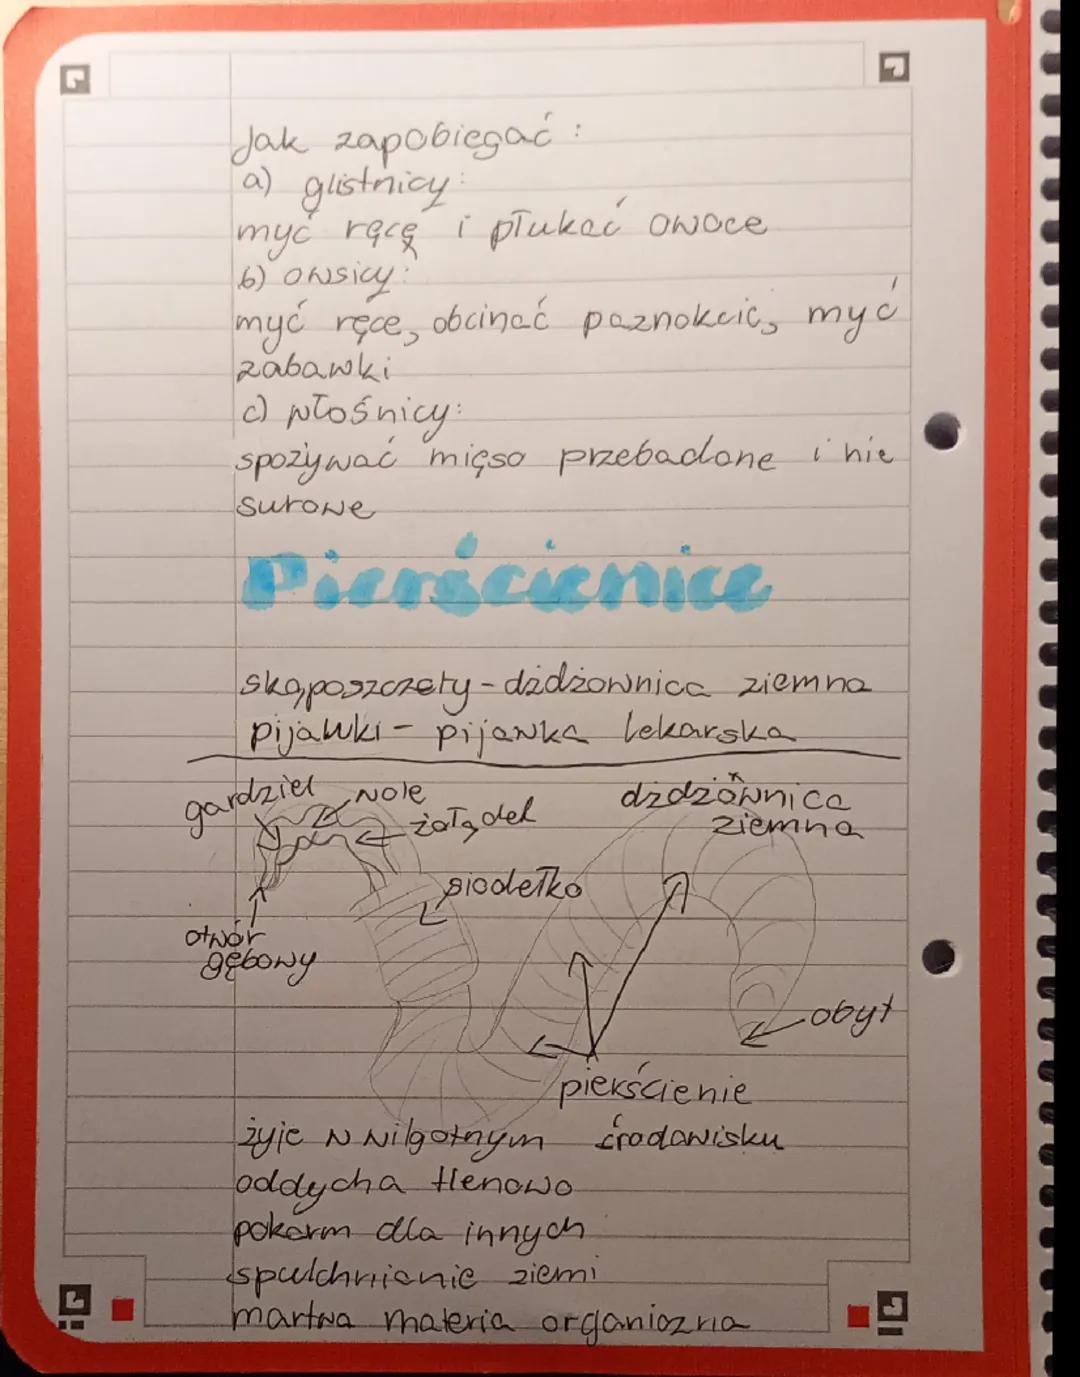 Jak zapobiegać:
a) glistnicy:
myć ręcę i płukać owoce
b) owsicy:
myć ręce, obcinać paznokcie, myć
zabawki
c) włośnicy:
spożywać mięso przebadane i nie
surowe
Pierścienice
skąposzczety - dżdżownica ziemna
pijawki - pijawka lekarska
gardziel
wole
żołądek
dżdżownica
ziemna
siodełko
otwór
gębowy
obyt
pierścienie
żyje w wilgotnym środowisku
oddycha tlenowo
pokarm dla innych
spulchnianie ziemi
martwa materia organiczna